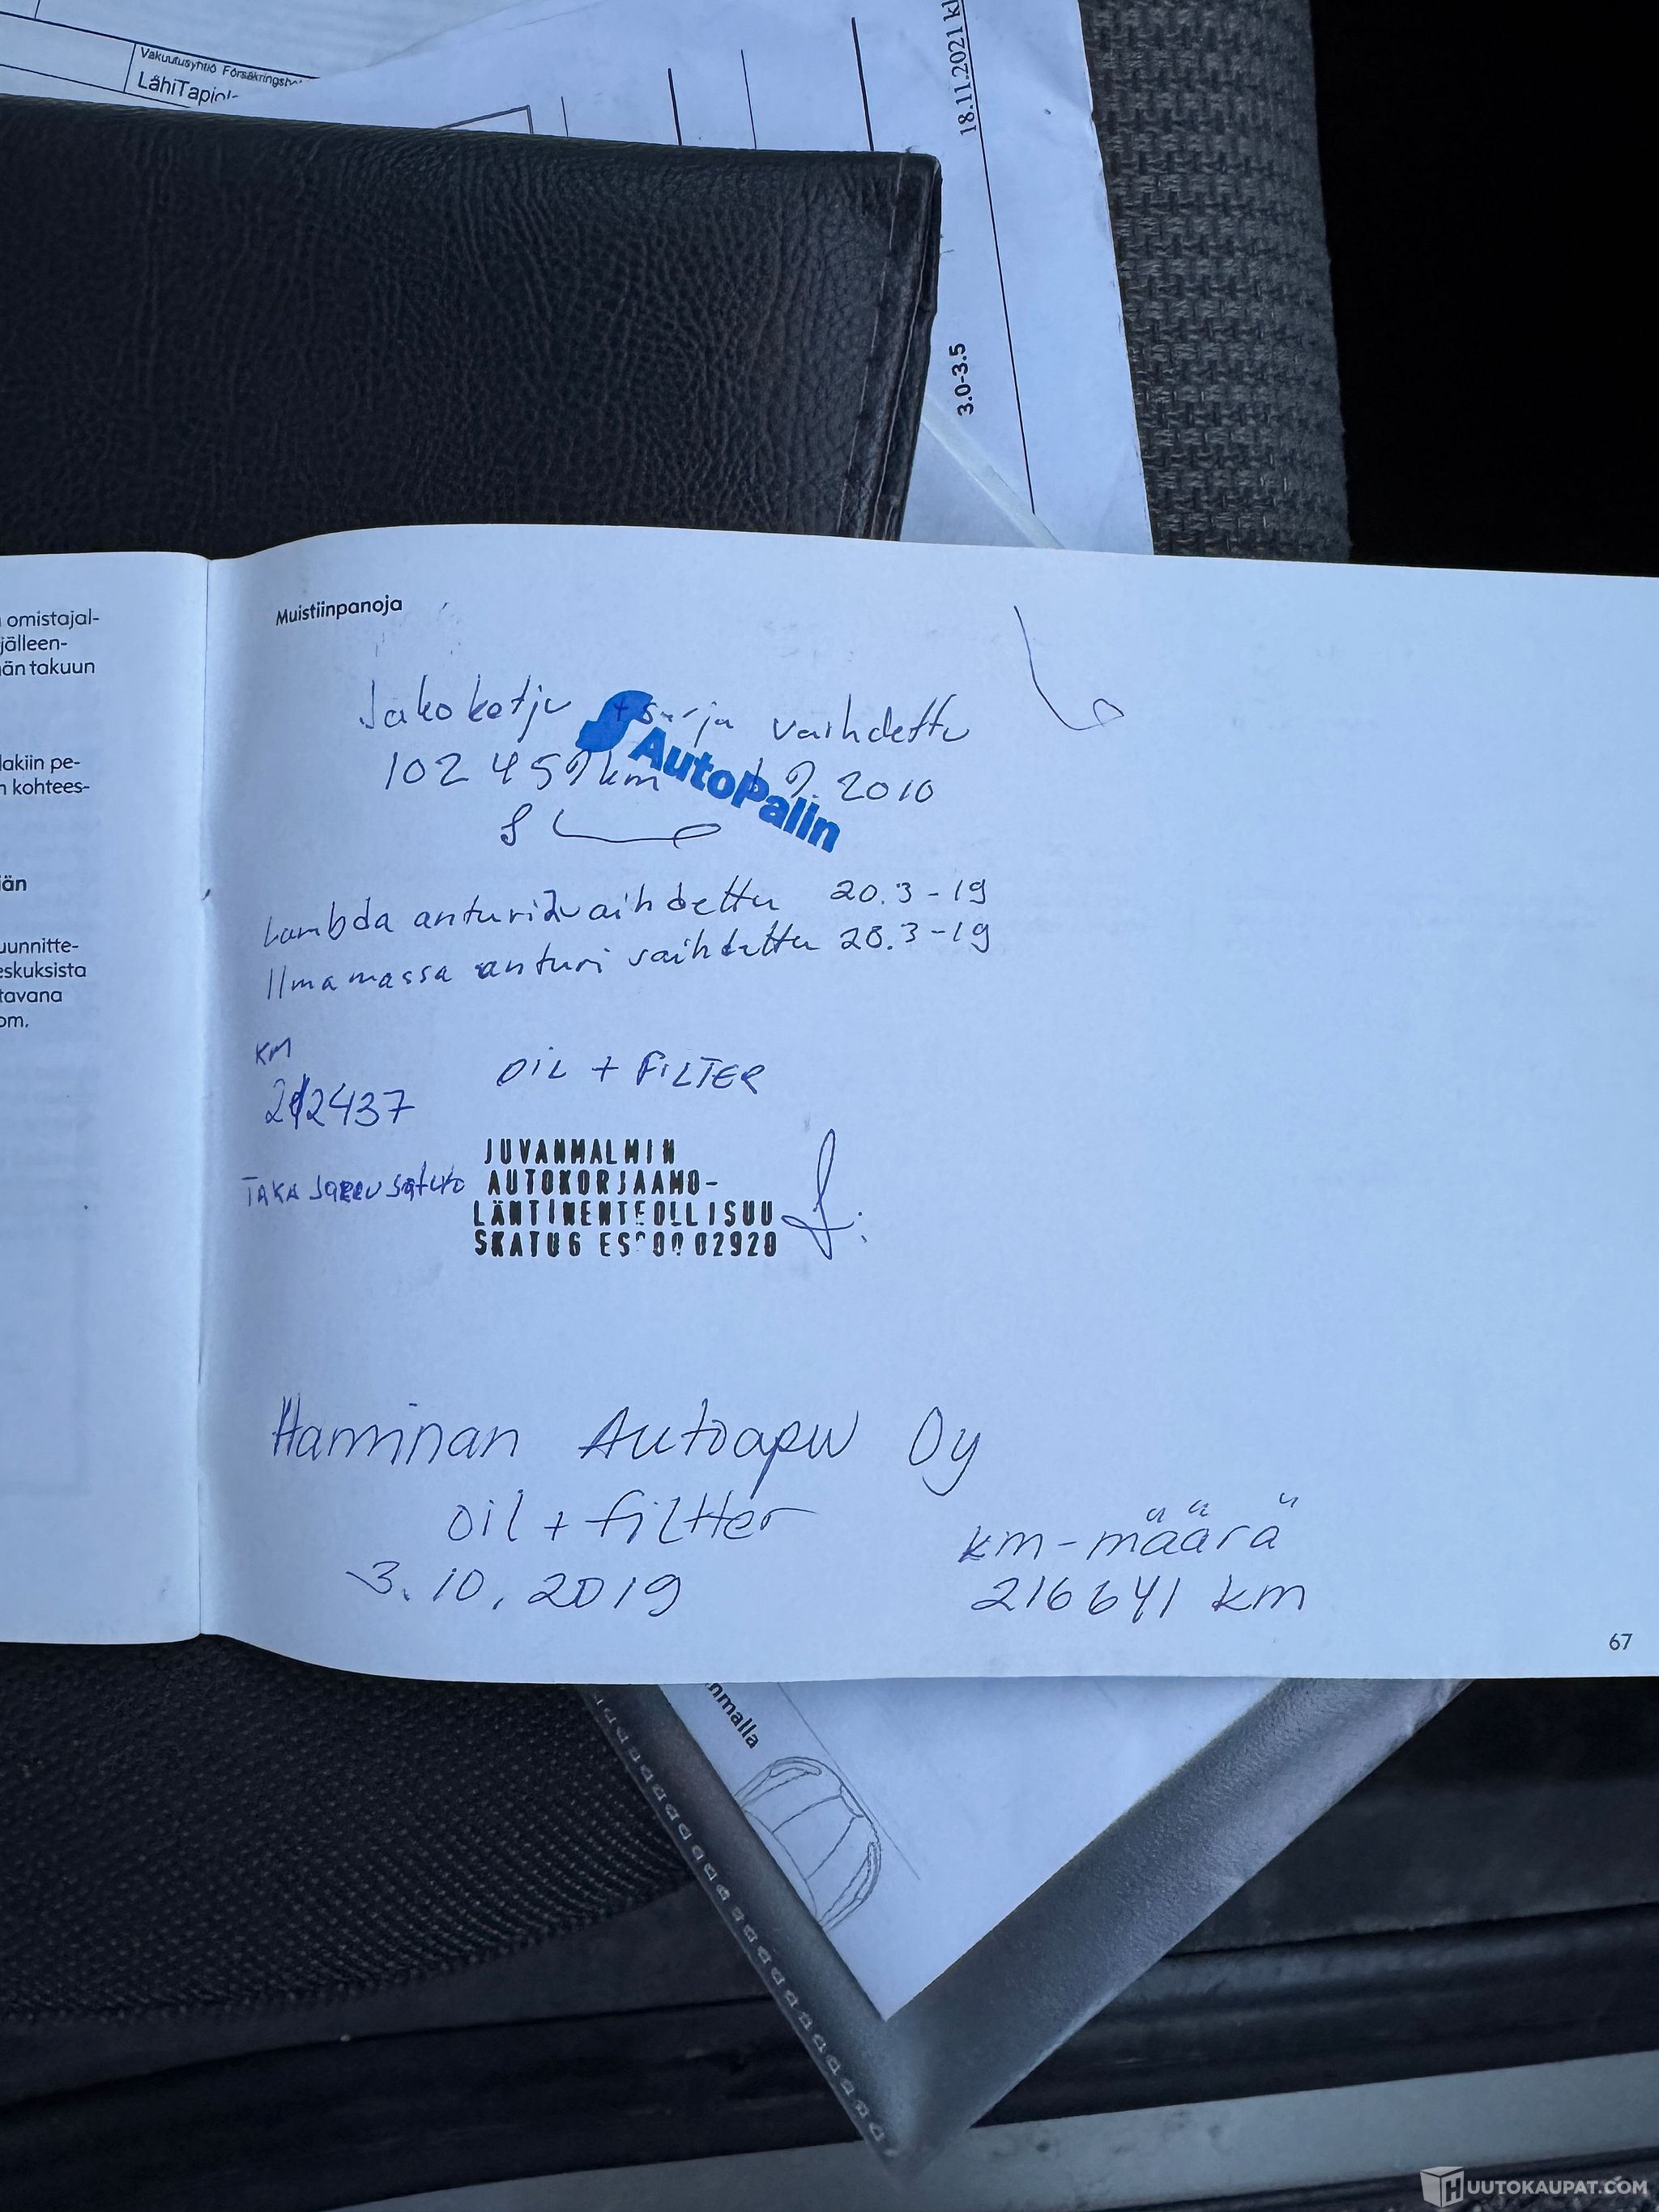 Vakuutusyhtiö Försäkringsbo
LähiTapiol
18.11.2021 kl
3.0-3.5
omistajal-
jälleen-
än takuun
lakiin pe-
n kohtees-
iän
uunnitte-
eskuksista
tavana
om.
Muistiinpanoja
Jakoketju + sarja vaihdettu
AutoPalin
102 459 km 9.2010
Lambda anturi vaihdettu 20.3-19
Ilmamassa anturi vaihdettu 28.3-19
KM
OIL + FILTER
212437
JUVANMALMIN
AUTOKORJAAMO-
TAKA JARRU
LÄNTINENTEOLLISUU
SKATU6 ESPOO 02920
Haminan Autoapu Oy
oil + filtter
km-määrä
3.10.2019
216641 km
67
mmalla
HUUTOKAUPAT.COM